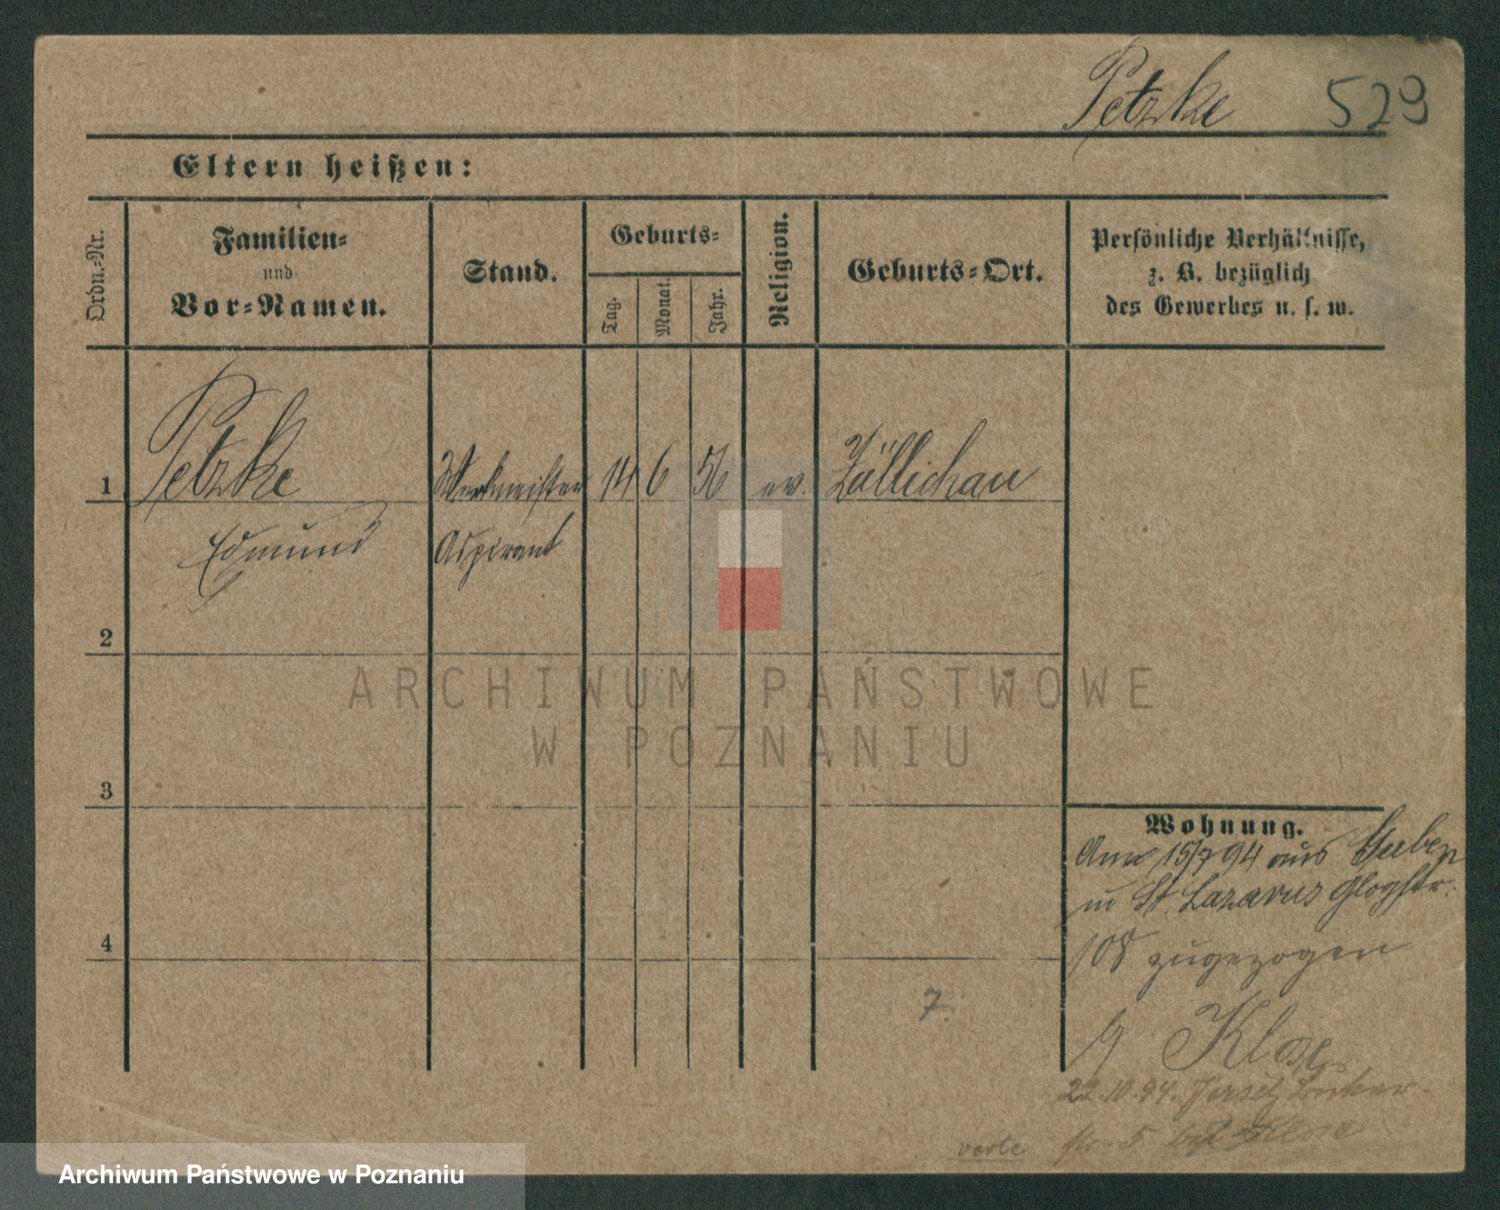 Petzke 529
Eltern heißen:
Ordn.-Nr.
Familien-
und
Vor-Namen.
Stand.
Geburts-
Tag.
Monat.
Jahr.
Religion.
Geburts-Ort.
Persönliche Verhältnisse,
z. B. bezüglich
des Gewerbes u. s. w.
1 Petzke Werkmeister 14 6 56 ev. Züllichau
Edmund Aspirant
2
ARCHIWUM PAŃSTWOWE
W POZNANIU
3
Wohnung.
Am 15/7 94 aus Guben
in St. Lazarus Glogstr.
4
108 zugezogen
7.
Klose
22.10.94.
verte 5 Klose
Archiwum Państwowe w Poznaniu